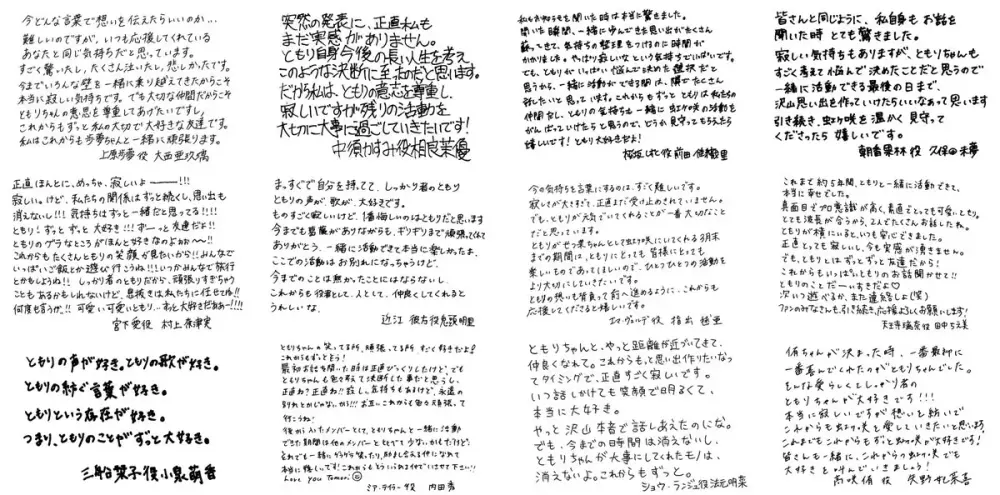 今どんな言葉で想いを伝えたらいいのか…
難しいのですが、いつも応援してくれている
あなたと同じ気持ちだと思っています。
すごく驚いたし、たくさん泣いたし、悲しかったです。
今までいろんな壁を一緒に乗り越えてきたからこそ
本当に寂しい気持ちです。でも大切な仲間だからこそ
ともりちゃんの意思を尊重してあげたいですし、
これからもずっと私の大切で大好きな友達です。
私はこれからも歩夢ちゃんと一緒に頑張ります。
上原歩夢役 大西亜玖璃
突然の発表に、正直私も
まだ実感がありません。
ともり自身今後の長い人生を考え
このような決断に至ったのだと思います。
だから私は、ともりの意志を尊重し、
寂しいですが残りの活動を
大切に大事に過ごしていきたいです!
中須かすみ役相良茉優
私もお知らせを聞いた時は本当に驚きました。
聞いた瞬間、一緒に歩んできた思い出がたくさん
蘇ってきて、気持ちの整理をつけるのに時間が
かかりました。やっぱり寂しいなという気持ちでいっぱいです。
でも、ともりがいっぱい悩んで決めた選択だと
思うから、一緒に活動ができる間は、隣でたくさん
話したいと思っています。これからもずっと ともりは私たちの
仲間だし、ともりの気持ちは一緒に虹ヶ咲の活動を
がんばっていけたらと思うので、どうか見守ってもらえたら
嬉しいです!ともり大好きだよ!
桜坂しずく役 前田佳織里
皆さんと同じように、私自身も お話を
聞いた時 とても驚きました。
寂しい気持ちもありますが、ともりちゃんも
すごく考えて悩んで決めたことだと思うので
一緒に活動できる最後の日まで、
沢山思い出を作っていけたらいいなぁって思います
引き続き、虹ヶ咲を 温かく見守って
くださったら 嬉しいです。
朝香果林役 久保田未夢
正直ほんとに、めっちゃ、寂しいよー———!!!
寂しい。けど、私たちの関係はずっと続くし、思い出も
消えないし!!! 気持ちはずっと一緒だと思ってる!!!!
ともり!ずっと ずっと 大好き!!! ずーっと友達だよ!!
ともりのゲラなところがほんと好きなのよぉぉ〜〜!!
これからもたくさんともりの笑顔が見たいから!!みんなで
いっぱいご飯とか遊び行こうね!!!いつかみんなで旅行
とかもしようね!! しっかり者のともりだから、頑張りすぎちゃう
こともあるかもしれないけど、息抜きは私たちに任せてね!!
何度も言うが。!! 可愛い可愛いともり…ずっと大好きだぁぁー!!!!
宮下愛役 村上奈津実
まっすぐで自分を持ってて、しっかり者のともり
ともりの声が、歌が、大好きです。
ものすごく寂しいけど、1番悔しいのはともりだと思います
今までも葛藤がありながらも、ギリギリまで頑張ってくれて
ありがとう、一緒に活動できて本当に楽しかったよ、
ここでの活動はお別れになっちゃうけど、
今までのことは無かったことにはならないし、
これからも 役者として、人として、仲良くしてくれると
うれしいな。
近江 彼方役鬼頭明里
今の気持ちを言葉にするのは、すごく難しいです。
寂しさが大きすぎて、正直まだ受け止めきれていません。
でも、ともりが元気でいてくれることが一番大切なこと
だと思っています。
ともりがせつ菜ちゃんとして虹ヶ咲にいてくれる3月末
までの期間は、ともりにとっても 皆様にとっても
楽しいものであってほしいので、ひとつひとつの活動を
より大切にしていきたいです。
ともりの想いも背負って前へ進めるように、これからも
応援してくださると嬉しいです。
エマ・ヴェルデ役 指出 毬亜
これまで約5年間、ともりと一緒に活動できて、
本当に幸せでした。
真面目でプロ意識が高く、素直でとっても可愛いともり。
とても波長が合うから、2人でたくさんお話したね。
ともりが横にいると、いつも安心できました。
正直とっても寂しいし、今も実感が湧きません。
でも、ともりとはずっとずっと友達だから!
これからもいっぱいともりのお話聞かせて!!
ともりのこと だーいすきだよ♡
次いつ遊べるか、また連絡しよ(笑)
ファンのみなさんも、引き続き、応援よろしくお願いします!
天王寺璃奈役 田中ちえ美
ともりの声が好き。ともりの歌が好き。
ともりの紡ぐ言葉が好き。
ともりという存在が好き。
つまり、ともりのことがずっと大好き。
三船栞子役小泉萌香
ともりちゃんの笑ってる所、頑張ってる所、すごく好きだよ!
これからもずっとだよ!
最初お話を聞いた時は正直びっくりしたけど、でも
ともりちゃんも色々考えて決断した事だと思うし、
永遠の
行こうね!
後から入ったメンバーとして、ともりちゃんと一緒に活動
できた期間は他のメンバーともくらべて少ないかもだけど、
Love you Tomori
ミア・テイラー役 内田秀
ともりちゃんと、やっと距離が近づいてきて、
仲良くなれて。これからもっと思い出作りたいなっ
てタイミングで、正直すごく寂しいです。
いつ話しかけても笑顔で明るくて、
本当に大好き。
やっと沢山本音で話しあえたのにな。
でも、今までの時間は消えないし、
ともりちゃんが大事にしてくれたモノは、
消えないよ。これからもずっと。
ショウ・ランジュ役法元明菜
侑ちゃんが決まった時、一番最初に
一番喜んでくれたのがともりちゃんでした。
そんな愛らしくてしっかり者の
ともりちゃんが大好きです!!!
本当に寂しいですが想いを紡いで
これからも虹ヶ咲を愛していきたいと思います
これまでもこれからもずっと虹ヶ咲が大好きです!
皆さんも一緒に、これからの虹ヶ咲でも
大好きを叫んでいきましょう!
高咲侑 役 矢野妃菜喜